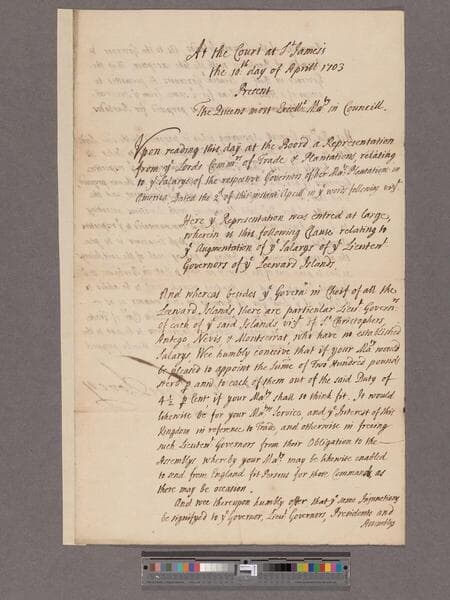 At the Court at St. James's
the 10th day of Aprill 1703
Present
The Queens most Excellt. Maty in Councill.
Upon reading this day at the Board a Representation
from ye Lords Commrs of Trade & Plantations, relating
to ye Salarys of the respective Governors of her Mats Plantations in
America Dated the 2d of this instant Aprill in ye words following vizt
Here ye Representation was entred at large,
wherein is this following Clause relating to
ye Augmentation of ye Salarys of ye Lieutent
Governors of ye Leeward Islands.
And whereas besides ye Governr in Cheif of all the
Leeward Islands, there are particular Lieut Governrs
of each of ye said Islands, vizt of St Christophers
Antego, Nevis & Montserrat, who have no established
Salarys. We humbly conceive that if your Maty would
be pleased to appoint the Summ of Two Hundred pounds
Sterg p and to each of them out of the said Duty of
4½ p Cent if your Maty shall so think fit. It would
likewise be for your Mats Service, and ye Interest of this
Kingdom in reference to Trade, and otherwise in freeing
such Lieutent Governors from their Obligation to the
Assemblys whereby your Maty may be likewise enabled
to send from England fit Persons for those Commands, as
there may be occasion.
And wee thereupon humbly offer that ye same Injunctions
be signifyed to ye Governor, Lieut Governors, Presidents and
Assembly